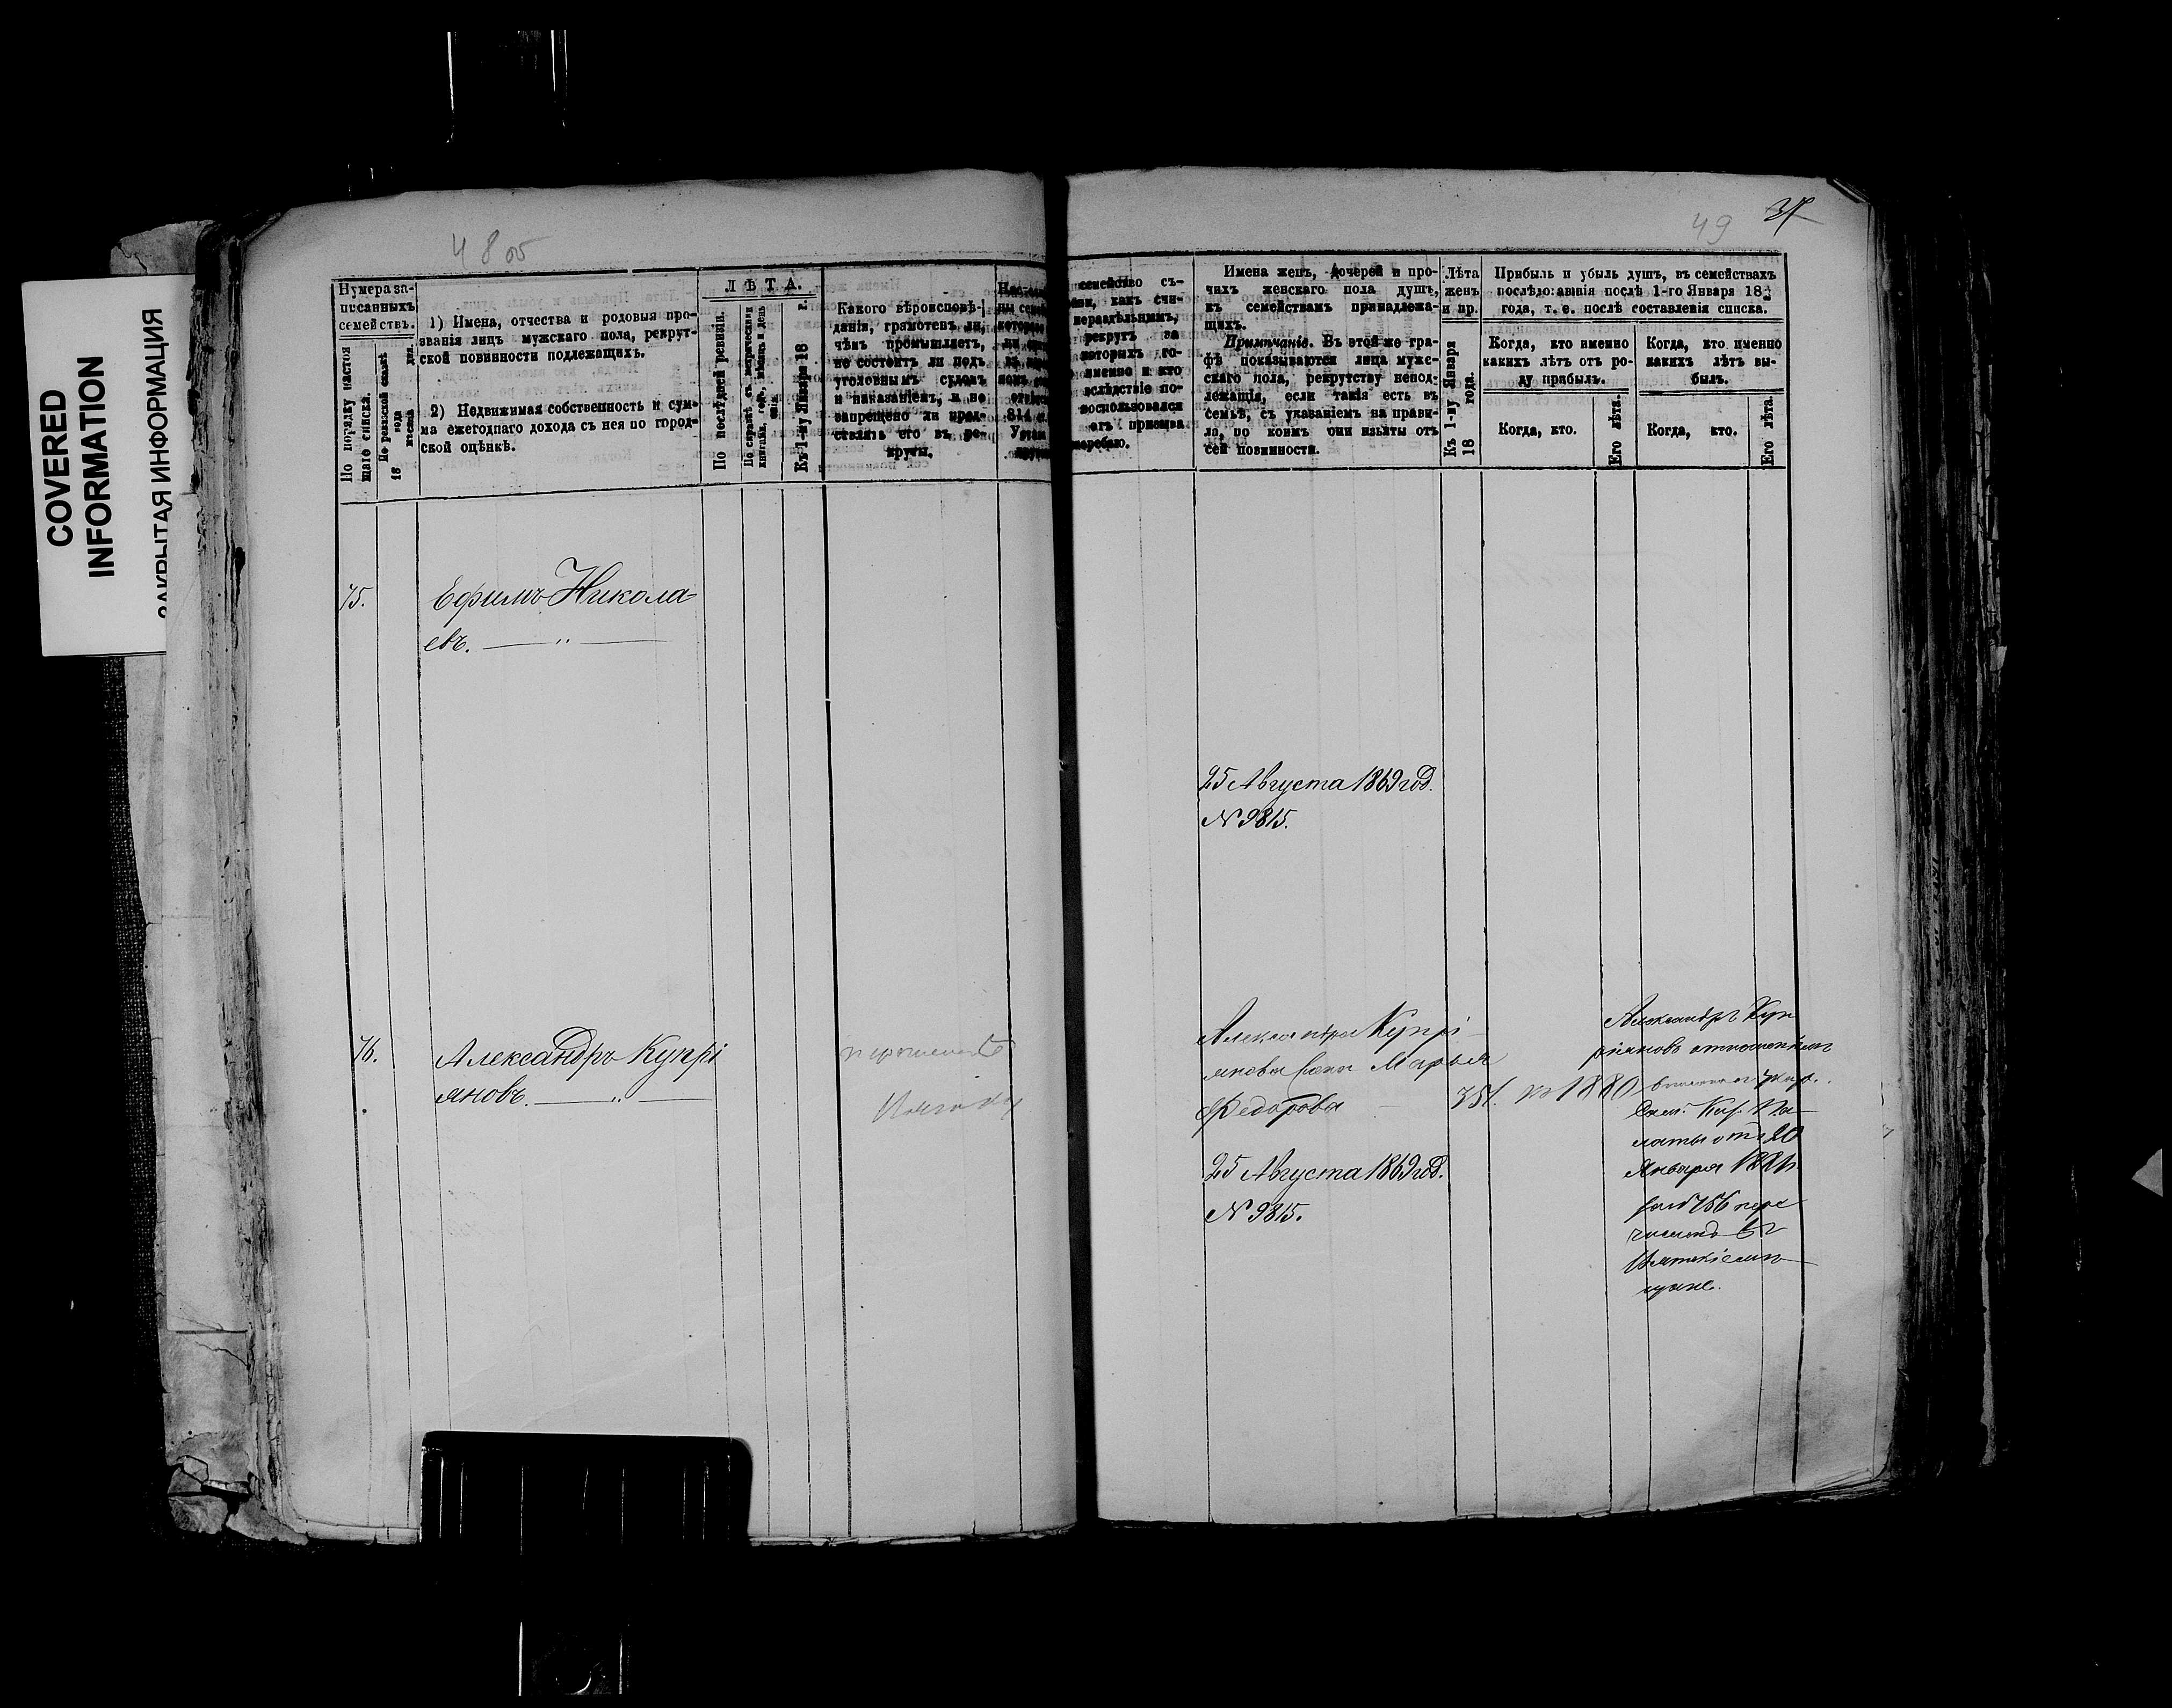 COVERED
INFORMATION
ЗАКРЫТАЯ ИНФОРМАЦИЯ
48 об
Нумера за-
писанныхъ
семействъ.
По порядку настоя
щаго списка.
По ревизской сказкѣ
18 года
мѣсяца дня.
1) Имена, отчества и родовыя про-
званія лицъ мужскаго пола, рекрут-
ской повинности подлежащихъ.
2) Недвижимая собственность и сум-
ма ежегоднаго дохода съ нея по город-
ской оцѣнкѣ.
ЛѢТА.
По послѣдней ревизіи.
По справкѣ съ метрическими
книгами, годъ, мѣсяцъ и день
Къ 1-ну Января 18 г.
Какого вѣроисповѣ-
данія, грамотенъ ли,
чѣмъ промышляетъ,
не состоитъ ли подъ
уголовнымъ судомъ
и наказаніемъ, и не
запрещено ли пред-
ставлять его въ ре-
круты.
75.
Ефимъ Никола-
евъ.
76.
Александръ Купрі
яновъ.
49
семейство
какъ счи-
нераздѣльнымъ,
рекрутъ за
которыхъ го-
именно и кто
вслѣдствіе по-
воспользовался
отъ пріема
жеребью.
Имена женъ, дочерей и про-
чихъ женскаго пола душъ,
къ семействамъ принадлежа-
щихъ.
Примѣчаніе. Въ этой же гра-
фѣ показываются лица муже-
скаго пола, рекрутству непод-
лежащія, если такія есть въ
семьѣ, съ указаніемъ на прави-
ло, по коимъ они изъяты отъ
сей повинности.
Лѣта
женъ
и пр.
Къ 1-ну Января
18 года.
Прибыль и убыль душъ, въ семействахъ
послѣдовавшія послѣ 1-го Января 18
года, т. е. послѣ составленія списка.
Когда, кто именно
какихъ лѣтъ отъ ро-
ду прибылъ.
Когда, кто.
Его лѣта.
Когда, кто именно
какихъ лѣтъ вы-
былъ.
Когда, кто.
Его лѣта.
25 Августа 1869 год.
N 9815.
Александра Купрі-
янова жена Марья
Федорова
1880
25 Августа 1869 год.
N 9815.
Александръ Куп
ріановъ отношеніемъ
Каз. Па-
латы отъ 20
Января
за № 756 пере
численъ въ
Вятскіе мѣ
щане.